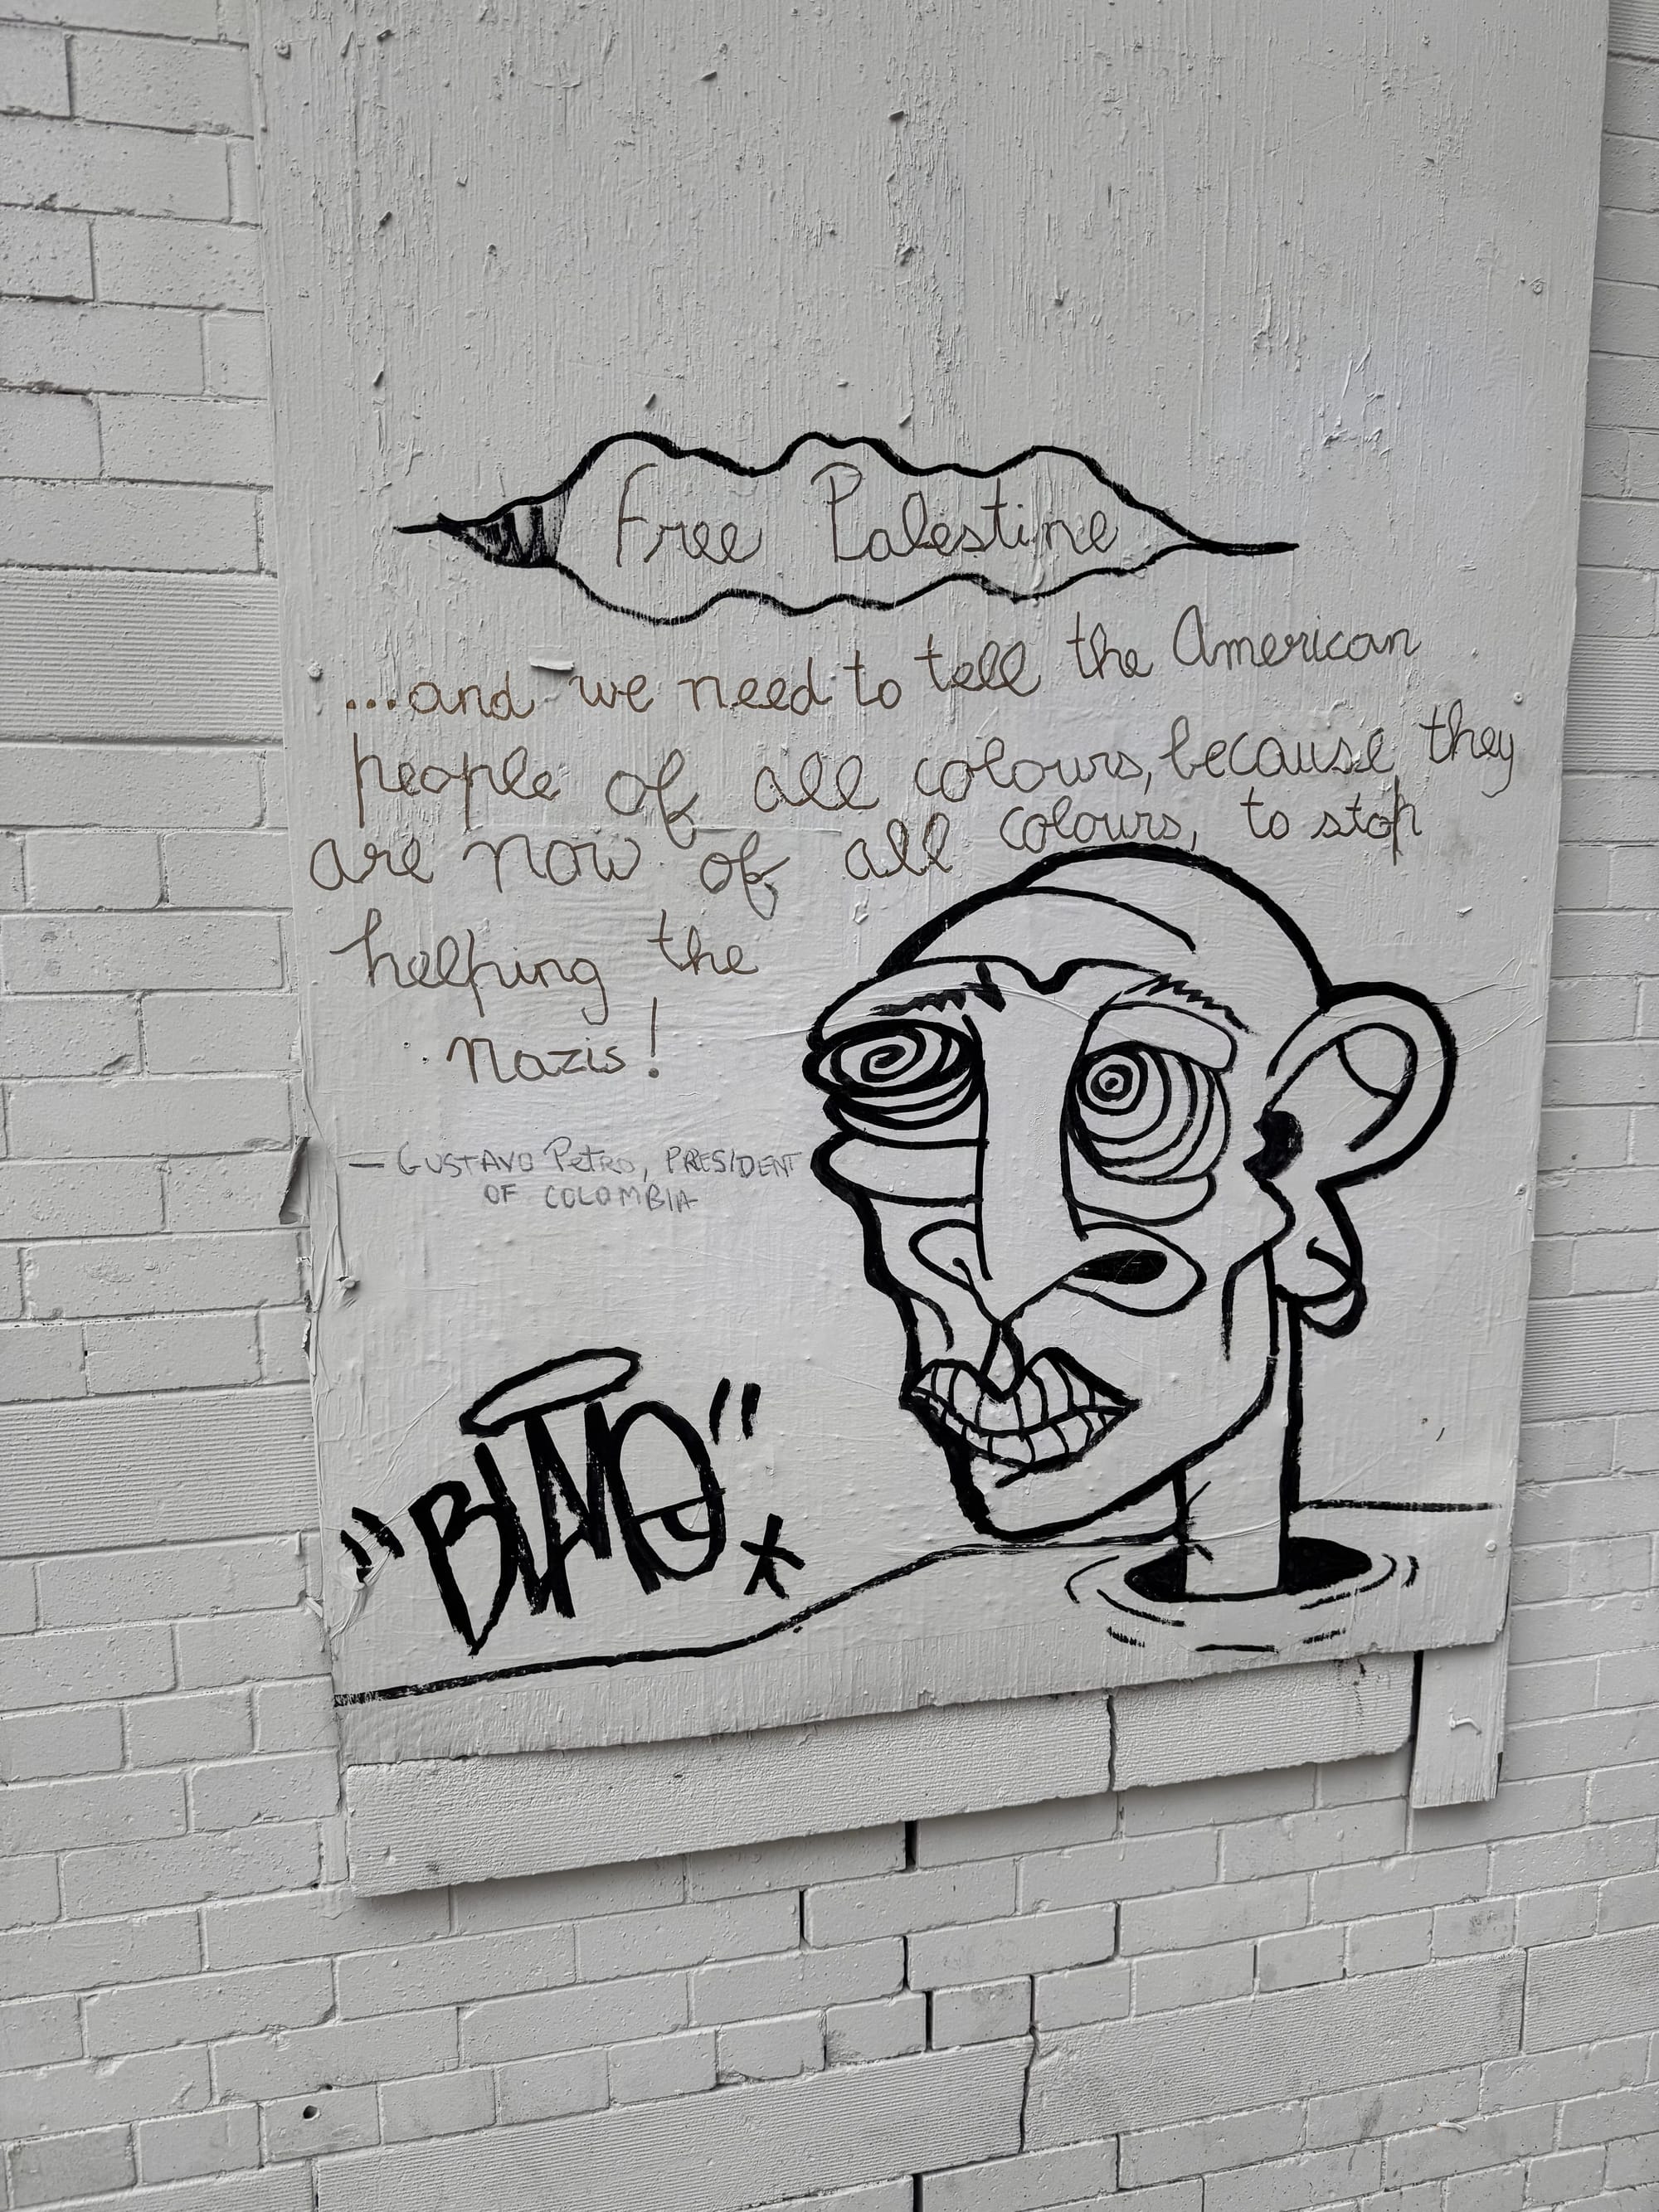 Free Palestine
...and we need to tell the American
people of all colours, because they
are now of all colours, to stop
helping the
nazis!
— GUSTAVO PETRO, PRESIDENT
OF COLOMBIA